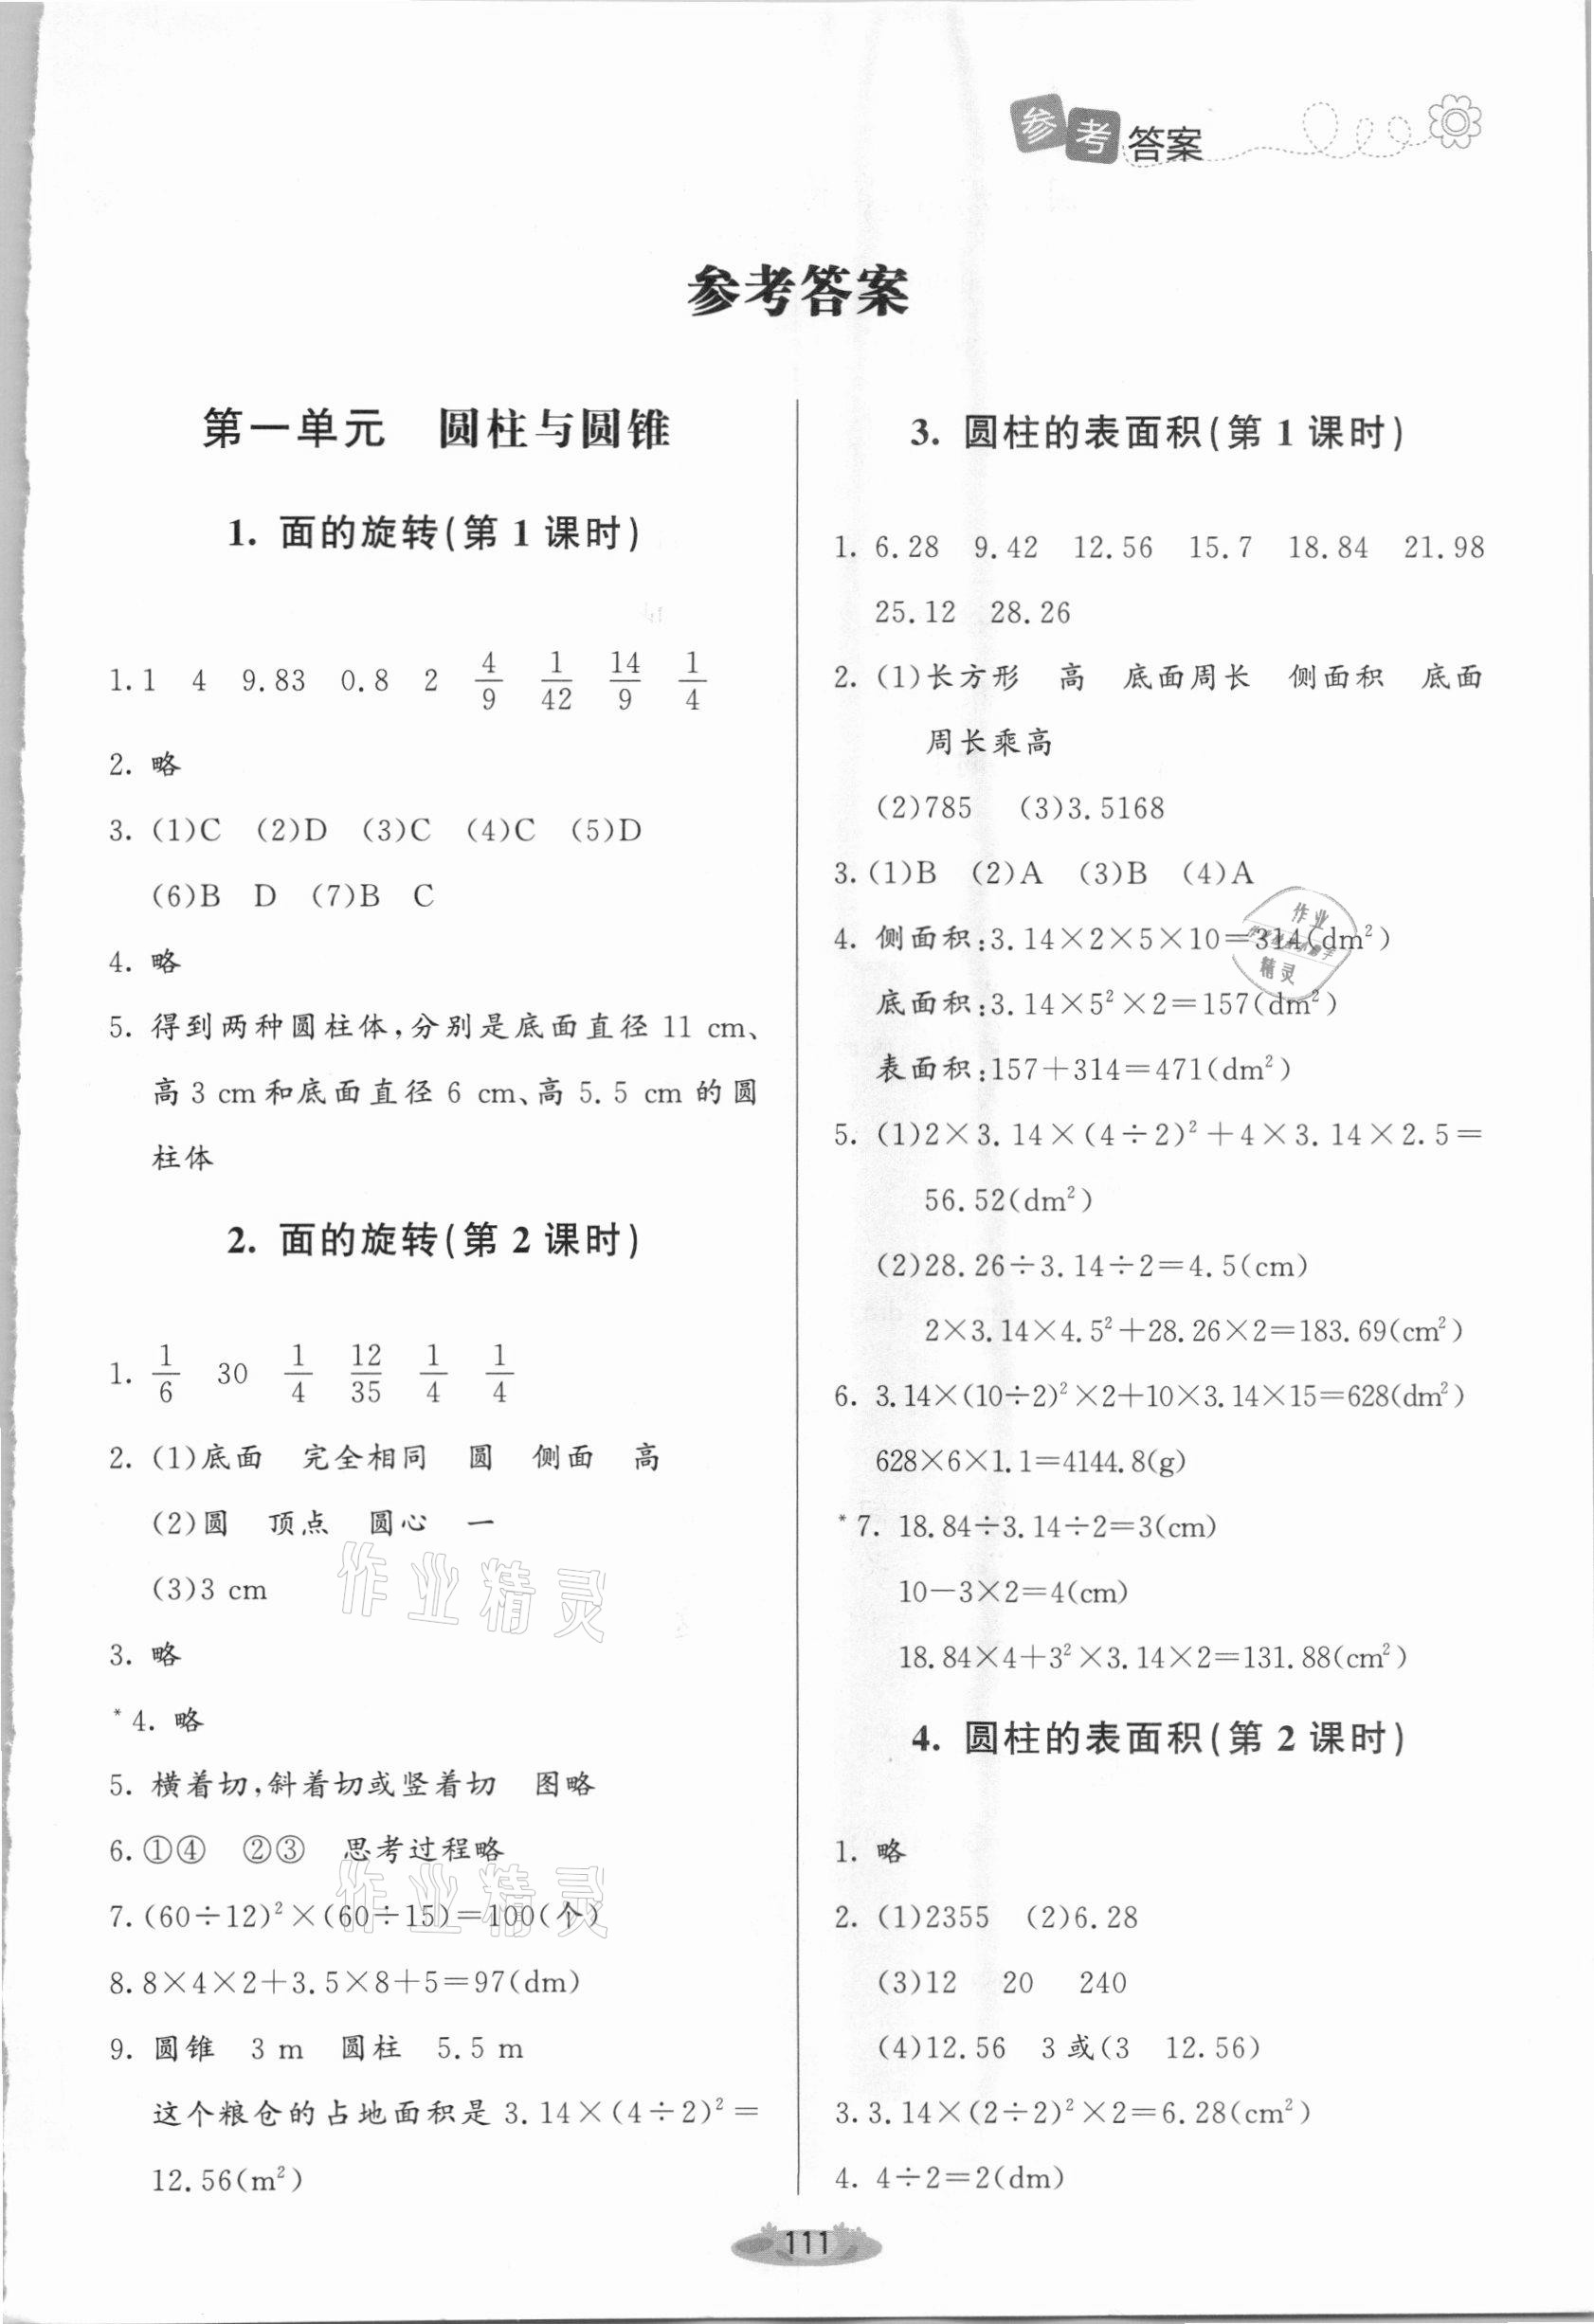 参考答案
参考答案
第一单元 圆柱与圆锥
1. 面的旋转(第 1 课时)
1. 1 4 9.83 0.8 2 4/9 1/42 14/9 1/4
2. 略
3. (1)C (2)D (3)C (4)C (5)D
(6)B D (7)B C
4. 略
5. 得到两种圆柱体,分别是底面直径 11 cm、
高 3 cm 和底面直径 6 cm、高 5.5 cm 的圆
柱体
2. 面的旋转(第 2 课时)
1. 1/6 30 1/4 12/35 1/4 1/4
2. (1)底面 完全相同 圆 侧面 高
(2)圆 顶点 圆心 一
(3)3 cm
3. 略
*4. 略
5. 横着切,斜着切或竖着切 图略
6. ①④ ②③ 思考过程略
7. (60÷12)²×(60÷15)=100(个)
8. 8×4×2+3.5×8+5=97(dm)
9. 圆锥 3 m 圆柱 5.5 m
这个粮仓的占地面积是 3.14×(4÷2)²=
12.56(m²)
3. 圆柱的表面积(第 1 课时)
1. 6.28 9.42 12.56 15.7 18.84 21.98
25.12 28.26
2. (1)长方形 高 底面周长 侧面积 底面
周长乘高
(2)785 (3)3.5168
3. (1)B (2)A (3)B (4)A
4. 侧面积:3.14×2×5×10=314(dm²)
底面积:3.14×5²×2=157(dm²)
表面积:157+314=471(dm²)
5. (1)2×3.14×(4÷2)²+4×3.14×2.5=
56.52(dm²)
(2)28.26÷3.14÷2=4.5(cm)
2×3.14×4.5²+28.26×2=183.69(cm²)
6. 3.14×(10÷2)²×2+10×3.14×15=628(dm²)
628×6×1.1=4144.8(g)
*7. 18.84÷3.14÷2=3(cm)
10-3×2=4(cm)
18.84×4+3²×3.14×2=131.88(cm²)
4. 圆柱的表面积(第 2 课时)
1. 略
2. (1)2355 (2)6.28
(3)12 20 240
(4)12.56 3 或(3 12.56)
3. 3.14×(2÷2)²×2=6.28(cm²)
4. 4÷2=2(dm)
111
作业精灵
作业精灵
作业
精灵